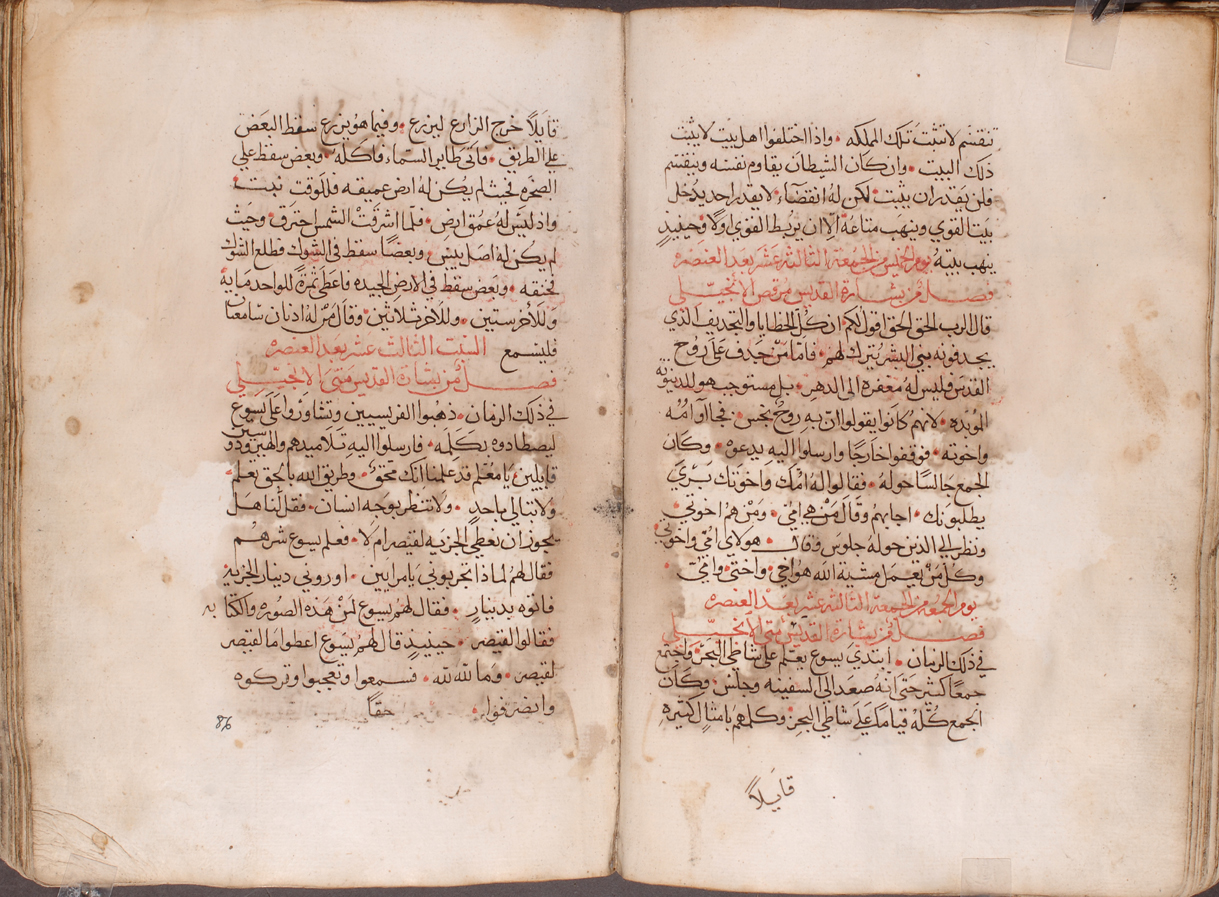 تنقسم لا تثبت تلك المملكه • واذا اختلفوا اهل بيت لا يثبت
ذلك البيت • وان كان الشيطان يقاوم نفسه وينقسم
فلن يقدر ان يثبت • لكن له انقضاء • لا يقدر احد يدخل
بيت القوي وينهب متاعه الا ان يربط القوي اولا • وحينيذٍ
ينهب بيته يوم الخميس من الجمعة الثالثه عشر بعد العنصره
فصل من بشارة القديس مرقص الانجيلي
قال الرب الحق الحق اقول لكم ان كل الخطايا والتجديف الذي
يجدفونه بني البشر يترك لهم • فاما من جدف على روح
القدس فليس له مغفره الى الدهر • بل مستوجب هو للدينونه
الموبده • لانهم كانوا يقولوا ان به روح نجس • فجاا امه
واخوته • فوقفوا خارجًا وارسلوا اليه يدعوه • وكان
الجمع جالسًا حوله • فقالوا له امك واخوتك برّي
يطلبونك • اجابهم وقال من هي امي • ومن هم اخوتي •
ونظر الى الذين حوله جلوس وقال • هولاي امي واخوتي
وكل من يعمل مشية الله هو اخي • واختي • وامي •
يوم الجمعه من الجمعة الثالثه عشر بعد العنصره
فصل من بشارة القديس متى الانجيلي
في ذلك الزمان • ابتدي يسوع يعلم على شاطي البحر • واجتمع
جمعًا كثير حتى انه صعد الى السفينه وجلس • وكان
الجمع كله قيامًا على شاطي البحر • وكلمهم بامثال كثيره
قايلاً
قايلاً خرج الزارع ليزرع • وفيما هو يزرع سقط البعض
على الطريق • فاتى طاير السماء فاكله • وبعض سقط على
الصخره بحيث لم يكن له ارض عميقه فللوقت نبت •
واذ ليس له عمق ارض • فلما اشرقت الشمس احترق • وحيث
لم يكن له اصل يبس • وبعضًا سقط في الشوك فطلع الشوك
فخنقه • وبعض سقط في الارض الجيده فاعطى ثمرة للواحد مايه
وللاخر ستين • وللاخر ثلاثين • وقال من له اذنان سامعتان
فليسمع السبت الثالث عشر بعد العنصره
فصل من بشارة القديس متى الانجيلي
في ذلك الزمان • ذهبوا الفريسيين وتشاوروا على يسوع
ليصطادوه بكلمه • فارسلوا اليه تلاميذهم والهيرودوسيين
قايلين • يا معلم قد علمنا انك محق • وطريق الله بالحق تعلم •
ولا تبالي باحدٍ • ولا تنظر بوجه انسان • فقل لنا هل
يجوز ان نعطي الجزيه لقيصر ام لا • فعلم يسوع شرهم
فقال لهم لماذا تجربوني يا مرايين • اوروني دينار الجزيه
فاتوه بدينارٍ • فقال لهم يسوع لمن هذه الصوره والكتابه
فقالوا لقيصر • حينيذٍ قال لهم يسوع اعطوا ما لقيصر
لقيصر • وما لله لله • فسمعوا وتعجبوا وتركوه
وانصرفوا • حقًا
86